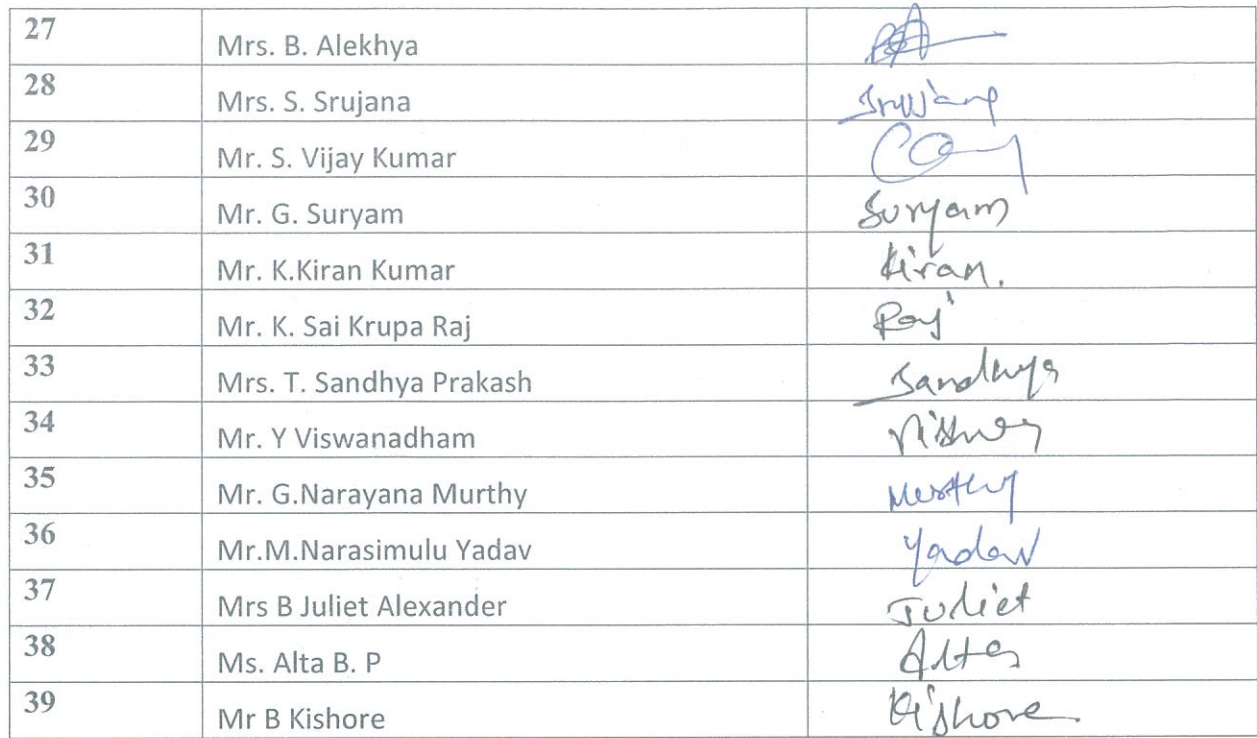 27 Mrs. B. Alekhya
28 Mrs. S. Srujana
29 Mr. S. Vijay Kumar
30 Mr. G. Suryam Suryam
31 Mr. K.Kiran Kumar Kiran.
32 Mr. K. Sai Krupa Raj Raj
33 Mrs. T. Sandhya Prakash Sandhya
34 Mr. Y Viswanadham
35 Mr. G.Narayana Murthy Murthy
36 Mr.M.Narasimulu Yadav Yadav
37 Mrs B Juliet Alexander Juliet
38 Ms. Alta B. P Alta
39 Mr B Kishore Kishore